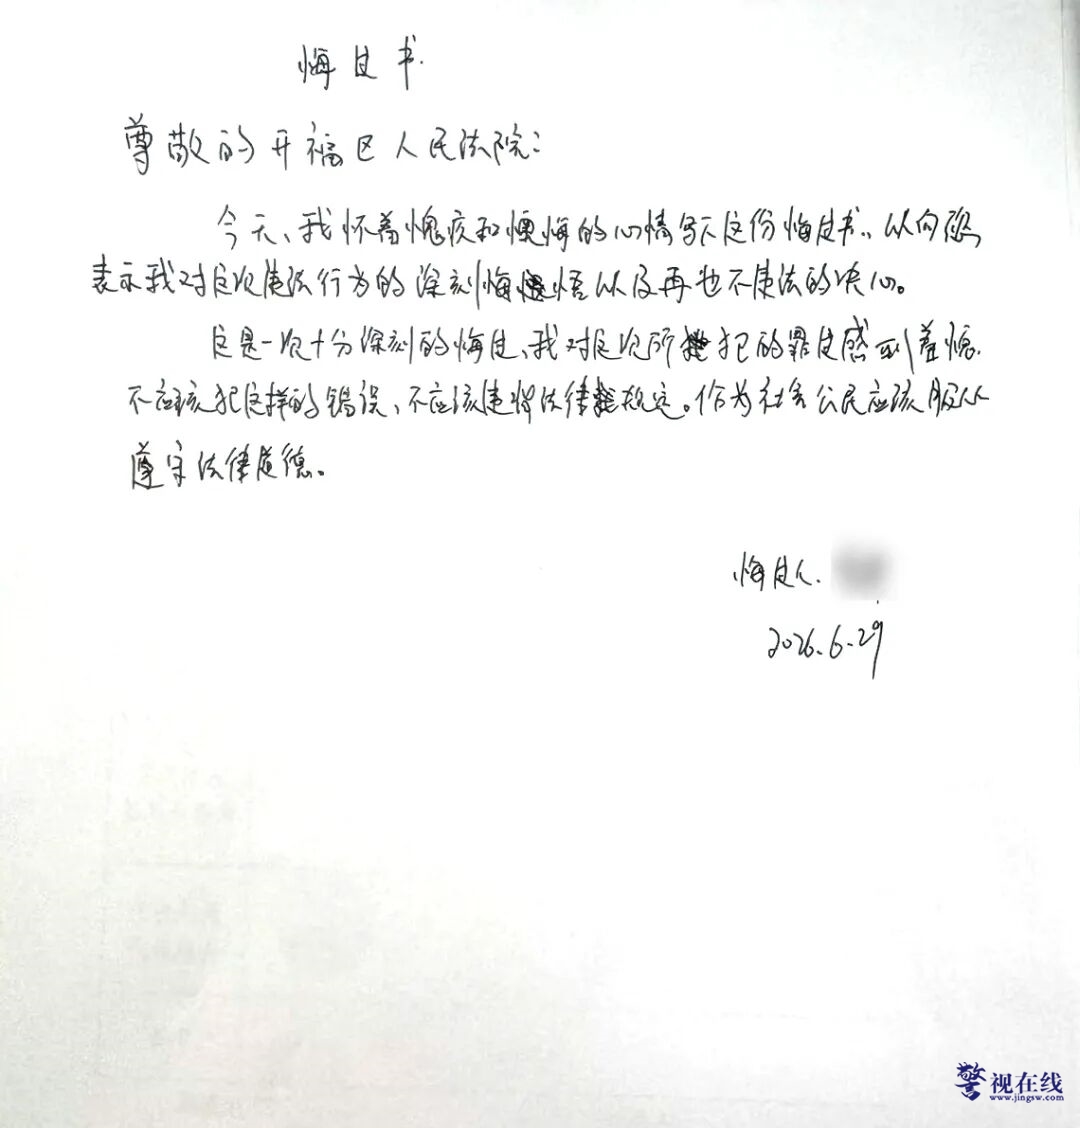 悔过书.
尊敬的开福区人民法院:
今天、我怀着愧疚和懊悔的心情写下这份悔过书.，以向您
表示我对这次违法行为的深刻悔悟以及再也不违法的决心。
这是一次十分深刻的悔过、我对这次所犯的罪过感到羞愧.
不应该犯这样的错误、不应该违背法律规定。作为社会公民应该服从
遵守法律道德。
悔过人.
2026.6.29
警视在线
www.jingsw.com